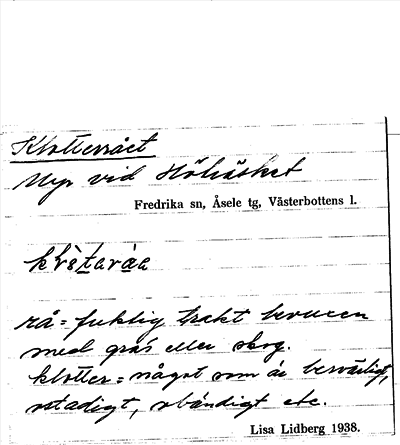 Klotterrået
Myr vid Hölsäsket
Fredrika sn, Åsele tg, Västerbottens l.
rå = fuktig trakt bevuxen
med gräs eller skog.
klotter = något som är besvärligt,
ostadigt, obändigt etc.
Lisa Lidberg 1938.